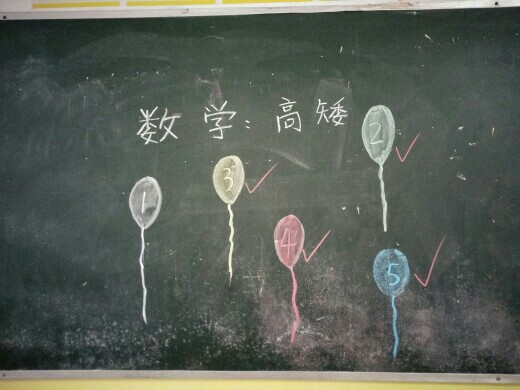 数学:高矮
2
3
1
4
5